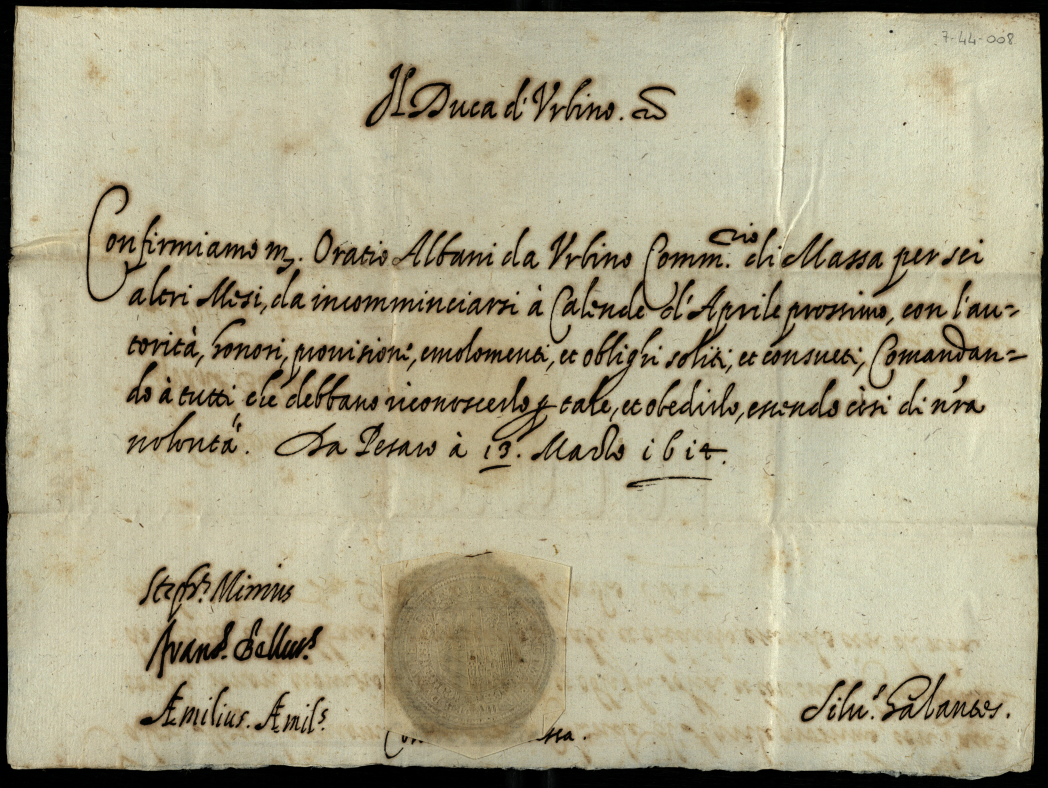 7-44-008
Il Duca d'Urbino.
Confirmiamo m. Oratio Albani da Urbino Comm.rio di Massa per sei
altri Mesi, da incomminciarsi à Calende d'Aprile prossimo, con l'au=
torità, honori, provisione, emolomenti, et oblighi soliti, et consueti, Comandan=
do à tutti che debbano riconoscerlo p tale, et obedirlo, essendo cosi di nra
volontà. Da Pesaro à 13. Marzo 1614.
Æmilius. Æmil.s